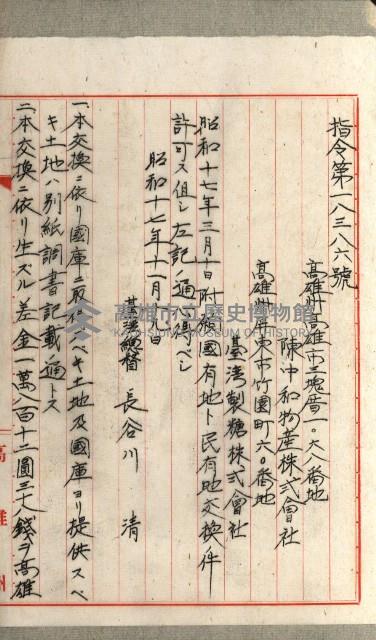 指令第一八三八六號
高雄州高雄市三塊厝一〇六八番地
陳中和物産株式會社
高雄州屏東市竹園町六〇番地
臺灣製糖株式會社
昭和十七年三月十日附願國有地ト民有地交換ノ件
許可ス但シ左記ノ通
ベシ
昭和十七年十一月
日
臺灣總督 長谷川 清
一、本交換ニ依リ國庫ニ
ベキ土地及國庫ヨリ提供スベ
キ土地ハ別紙調書記載ノ通トス
二、本交換ニ依リ生ズル差金一萬八百十二圓三十八錢ヲ高雄
高雄市立歷史博物館
KAOHSIUNG MUSEUM OF HISTORY
高雄州